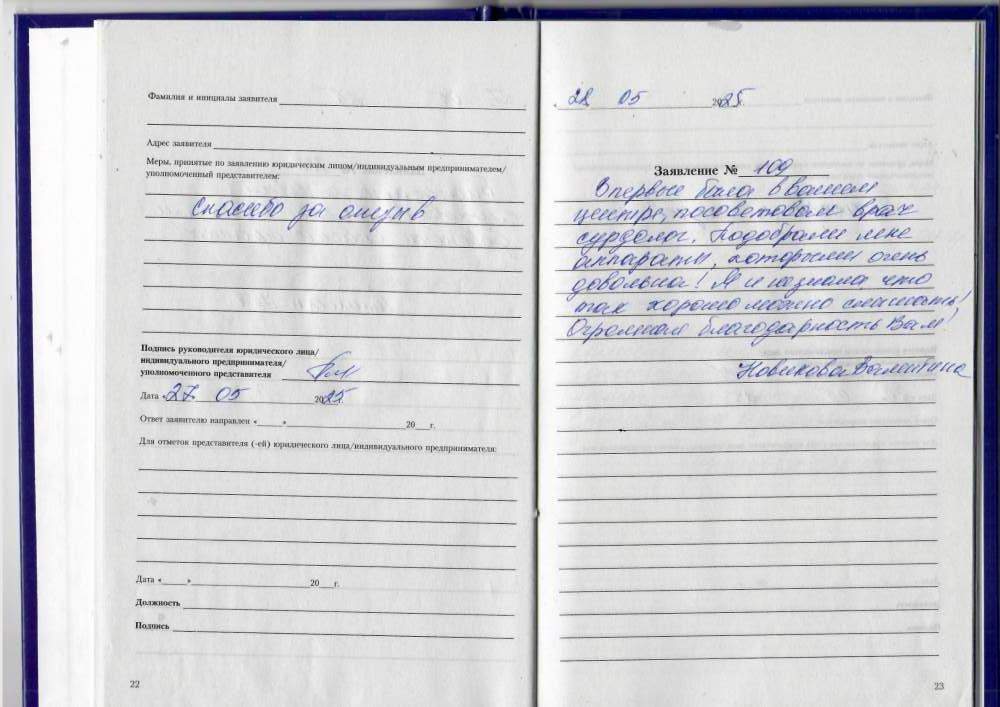 Фамилия и инициалы заявителя
Адрес заявителя
Меры, принятые по заявлению юридическим лицом/индивидуальным предпринимателем/
уполномоченный представителем:
спасибо за отзыв
Подпись руководителя юридического лица/
индивидуального предпринимателя/
уполномоченного представителя
Дата «27 05 2025г.
Ответ заявителю направлен «
» 20 г.
Для отметок представителя (-ей) юридического лица/индивидуального предпринимателя:
Дата « » 20 г.
Должность
Подпись
22
28 05 2025г.
Заявление № 109
Впервые была в вашем
центре, посоветовал врач
сурдолог. Подобрали мне
аппараты, которыми очень
довольна! Я и не знала что
так хорошо можно слышать!
Огромная благодарность Вам!
Новикова Валентина
23